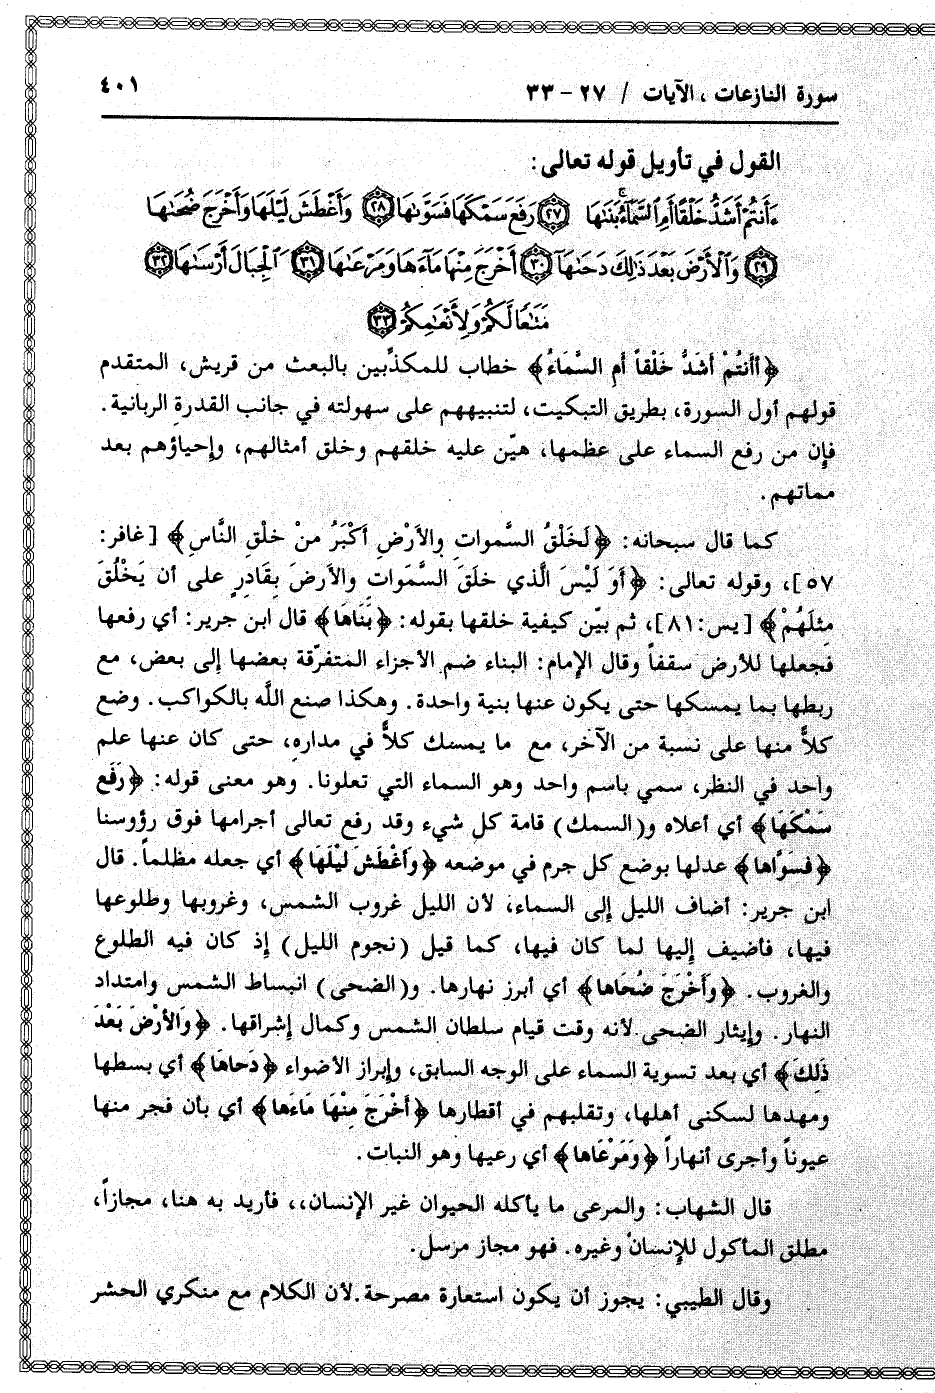 سورة النازعات ، الآيات / ٢٧ - ٣٣ ٤٠١
القول في تأويل قوله تعالى:
ءَأَنتُمْ أَشَدُّ خَلْقًا أَمِ ٱلسَّمَآءُ بَنَىٰهَا ﴿٢٧﴾ رَفَعَ سَمْكَهَا فَسَوَّىٰهَا ﴿٢٨﴾ وَأَغْطَشَ لَيْلَهَا وَأَخْرَجَ ضُحَىٰهَا
﴿٢٩﴾ وَٱلْأَرْضَ بَعْدَ ذَٰلِكَ دَحَىٰهَآ ﴿٣٠﴾ أَخْرَجَ مِنْهَا مَآءَهَا وَمَرْعَىٰهَا ﴿٣١﴾ وَٱلْجِبَالَ أَرْسَىٰهَا ﴿٣٢﴾
مَتَٰعًا لَّكُمْ وَلِأَنْعَٰمِكُمْ ﴿٣٣﴾
﴿أأنتُمْ أشَدُّ خَلْقاً أم السَّمَاءُ﴾ خطاب للمكذّبين بالبعث من قريش، المتقدم
قولهم أول السورة، بطريق التبكيت، لتنبيههم على سهولته في جانب القدرة الربانية.
فإن من رفع السماء على عظمها، هيّن عليه خلقهم وخلق أمثالهم، وإحياؤهم بعد
مماتهم.
كما قال سبحانه: ﴿لَخَلْقُ السَّموات والأرْضِ أكْبَرُ منْ خلْقِ النَّاسِ﴾ [غافر:
٥٧]، وقوله تعالى: ﴿أوَ لَيْسَ الَّذي خلَقَ السَّمَواتِ والأرضَ بِقَادرٍ على أن يَخْلُقَ
مِثلَهُمْ﴾ [يس:٨١]، ثم بيّن كيفية خلقها بقوله: ﴿بَنَاهَا﴾ قال ابن جرير: أي رفعها
فجعلها للأرض سقفاً وقال الإمام: البناء ضم الأجزاء المتفرّقة بعضها إلى بعض، مع
ربطها بما يمسكها حتى يكون عنها بنية واحدة. وهكذا صنع اللّه بالكواكب. وضع
كلاًّ منها على نسبة من الآخر، مع ما يمسك كلاًّ في مداره، حتى كان عنها علم
واحد في النظر، سمي باسم واحد وهو السماء التي تعلونا. وهو معنى قوله: ﴿رَفَع
سَمْكَهَا﴾ أي أعلاه و(السمك) قامة كل شيء وقد رفع تعالى أجرامها فوق رؤوسنا
﴿فسَوَّاها﴾ عدلها بوضع كل جرم في موضعه ﴿وأغْطَشَ ليْلَهَا﴾ أي جعله مظلماً. قال
ابن جرير: أضاف الليل إلى السماء، لأن الليل غروب الشمس، وغروبها وطلوعها
فيها، فأضيف إليها لما كان فيها، كما قيل (نجوم الليل) إذ كان فيه الطلوع
والغروب. ﴿وأخْرَجَ ضُحَاها﴾ أي أبرز نهارها. و(الضحى) انبساط الشمس وامتداد
النهار. وإيثار الضحى لأنه وقت قيام سلطان الشمس وكمال إشراقها. ﴿والأرْضَ بَعْدَ
ذَلِكَ﴾ أي بعد تسوية السماء على الوجه السابق، وإبراز الأضواء ﴿دَحاهَا﴾ أي بسطها
ومهدها لسكنى أهلها، وتقلبهم في أقطارها ﴿أخْرَجَ مِنْهَا مَاءَها﴾ أي بأن فجر منها
عيوناً وأجرى أنهاراً ﴿ومَرْعَاها﴾ أي رعيها وهو النبات.
قال الشهاب: والمرعى ما يأكله الحيوان غير الإنسان،، فأريد به هنا، مجازاً،
مطلق المأكول للإنسان وغيره. فهو مجاز مرسل.
وقال الطيبي: يجوز أن يكون استعارة مصرحة.لأن الكلام مع منكري الحشر